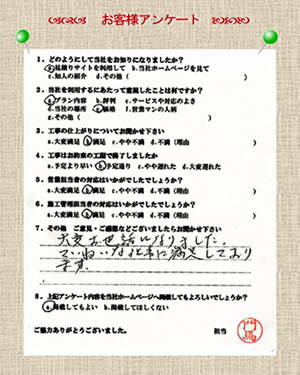 お客様アンケート
1．どのようにして当社をお知りになりましたか？
ⓐ見積りサイトを利用して b.当社ホームページを見て
c.知人の紹介 d.その他（
2．当社を利用するにあたって重視したことは何ですか？
ⓐプラン内容 b.評判 c.サービスや対応のよさ
d.当社の場所 ⓔ価格 f.営業マンの人柄
g.その他（ ）
3．工事の仕上がりについてお聞かせ下さい
a.大変満足 ⓑ満足 c.やや不満 d.不満（理由 ）
4．工事はお約束の工期で終了しましたか
a.予定より早い ⓑ予定通り c.やや遅れた d.大変遅れた
5．営業担当者の対応はいかがでしたでしょうか？
a.大変満足 ⓑ満足 c.やや不満 d.不満（理由 ）
6．施工管理担当者の対応はいかがでしたでしょうか？
a.大変満足 ⓑ満足 c.やや不満 d.不満（理由 ）
7．その他 ご意見・ご感想などございましたらお聞かせ下さい
大変お世話になりました。
ていねいな仕事に満足しており
ます。
8．上記アンケート内容を当社ホームページへ掲載してもよろしいでしょうか？
ⓐ掲載してもよい b.掲載してほしくない
ご協力ありがとうございました。 担当